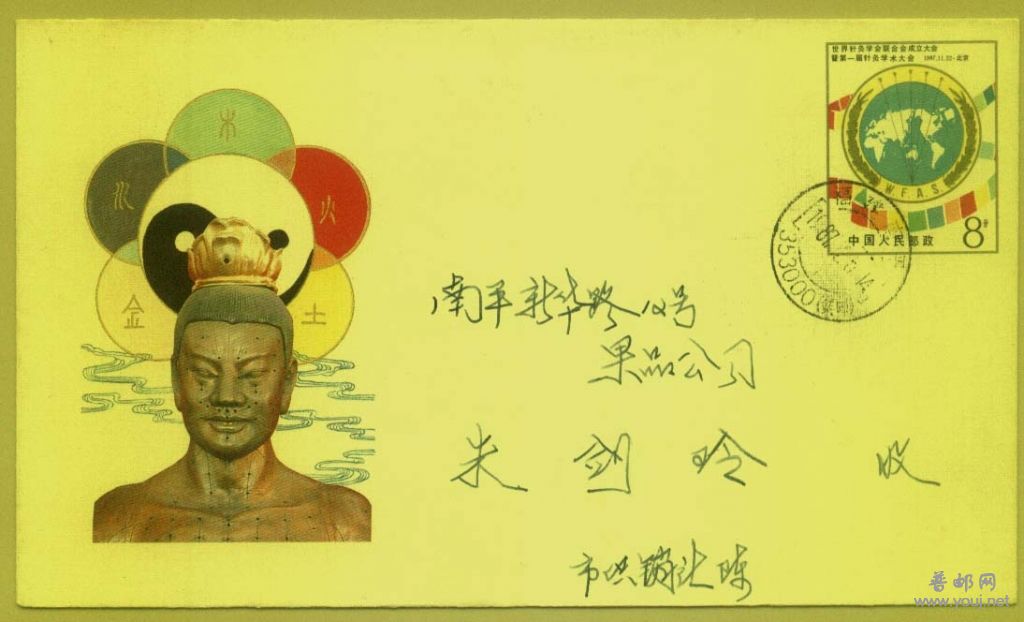 世界针灸学会联合会成立大会
暨第一届针灸学术大会 1987.11.22·北京
W.F.A.S.
中国人民邮政 8分
木
水
火
金
土
353000
南平新华路 号
果品公司
朱剑玲 收
市供销 陈
普邮网
www.youj.net